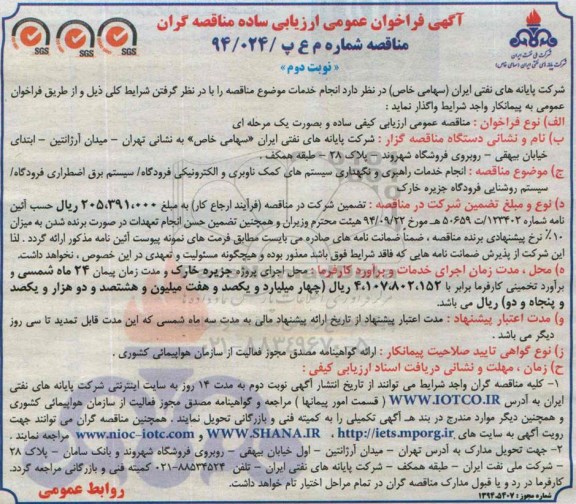 آگهی فراخوان عمومی ارزیابی ساده مناقصه گران
مناقصه شماره م ع پ /۹۴/۰۲۴
« نوبت دوم »
شرکت ملی نفت ایران
شرکت پایانه های نفتی ایران (سهامی خاص)
SGS SGS SGS
شرکت پایانه های نفتی ایران (سهامی خاص) در نظر دارد انجام خدمات موضوع مناقصه را با در نظر گرفتن شرایط کلی ذیل و از طریق فراخوان
عمومی به پیمانکار واجد شرایط واگذار نماید :
الف) نوع فراخوان : مناقصه عمومی ارزیابی کیفی ساده و بصورت یک مرحله ای
ب) نام و نشانی دستگاه مناقصه گزار : شرکت پایانه های نفتی ایران «سهامی خاص» به نشانی تهران - میدان آرژانتین - ابتدای
خیابان بیهقی - روبروی فروشگاه شهروند - پلاک ۲۸ - طبقه همکف .
ج) موضوع مناقصه : انجام خدمات راهبری و نگهداری سیستم های کمک ناوبری و الکترونیکی فرودگاه/ سیستم برق اضطراری فرودگاه/
سیستم روشنایی فرودگاه جزیره خارک
د) نوع و مبلغ تضمین شرکت در مناقصه : تضمین شرکت در مناقصه (فرآیند ارجاع کار) به مبلغ ۲۰۵،۳۹۱،۰۰۰ ریال حسب آئین
نامه شماره ۱۲۳۴۰۲/ت ۵۰۶۵۹ هـ مورخ ۹۴/۰۹/۲۲ هیئت محترم وزیران و همچنین تضمین حسن انجام تعهدات در صورت برنده شدن به میزان
۱۰٪ نرخ پیشنهادی برنده مناقصه ، ضمناً ضمانت نامه های صادره می بایست مطابق فرمت های نمونه پیوست آئین نامه مذکور ارائه گردد . لذا
این شرکت از پذیرش ضمانت نامه هایی که فاقد شرایط فوق باشد معذور بوده و هیچگونه مسئولیت و تعهدی در این خصوص ، نخواهد داشت.
ه) محل ، مدت زمان اجرای خدمات و برآورد کارفرما : محل اجرای پروژه جزیره خارک و مدت زمان پیمان ۲۴ ماه شمسی و
برآورد تخمینی کارفرما برابر با ۴،۱۰۷،۸۰۲،۱۵۲ ریال (چهار میلیارد و یکصد و هفت میلیون و هشتصد و دو هزار و یکصد
و پنجاه و دو) ریال می باشد.
و) مدت اعتبار پیشنهاد : مدت اعتبار پیشنهاد از تاریخ ارائه پیشنهاد مالی به مدت سه ماه شمسی که این مدت قابل تمدید تا سی روز
دیگر می باشد .
ز) نوع گواهی تایید صلاحیت پیمانکار : ارائه گواهینامه مصدق مجوز فعالیت از سازمان هواپیمائی کشوری .
ح) زمان ، مهلت و نشانی دریافت اسناد ارزیابی کیفی :
۱- کلیه مناقصه گران واجد شرایط می توانند از تاریخ انتشار آگهی نوبت دوم به مدت ۱۴ روز به سایت اینترنتی شرکت پایانه های نفتی
ایران به آدرس WWW.IOTCO.IR ( قسمت امور پیمانها ) مراجعه و گواهینامه مصدق مجوز فعالیت از سازمان هواپیمائی کشوری
و همچنین دیگر موارد مندرج در بند هـ آگهی تکمیلی را به کمیته فنی و بازرگانی تحویل نمایند . همچنین مناقصه گران می توانند جهت
رویت آگهی به سایت های http://iets.mporg.ir ، WWW.SHANA.IR و www.nioc-iotc.com مراجعه نمایند .
۲- جهت تحویل مدارک به آدرس تهران - میدان آرژانتین - اول خیابان بیهقی - روبروی فروشگاه شهروند و بانک سامان - پلاک ۲۸
- شرکت ملی نفت ایران - طبقه همکف - شرکت پایانه های نفتی ایران - تلفن ۸۸۵۳۴۵۲۴-۰۲۱ کمیته فنی و بازرگانی مراجعه گردد.
کارفرما در رد و یا قبول مدارک مناقصه گران در تمام مراحل اختیار تام خواهد داشت.
روابط عمومی
شماره مجوز : ۱۳۹۴،۵۴۰۷
۰۲۱-۸۸۳۴۹۶۷۰-۵